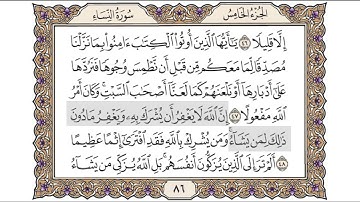 الجزء الخامس
سورة النساء
إلا قليلا ٤٦ يأيها الذين أوتوا الكتب ءامنوا بما نزلنا
مصدقا لما معكم من قبل أن نطمس وجوها فنردها
على أدبارها أو نلعنهم كما لعنا أصحب السبت وكان أمر
الله مفعولا ٤٧ إن الله لا يغفر أن يشرك به ويغفر ما دون
ذلك لمن يشاء ومن يشرك بالله فقد افترى إثما عظيما ٤٨
ألم تر إلى الذين يزكون أنفسهم بل الله يزكي من يشاء
٨٦